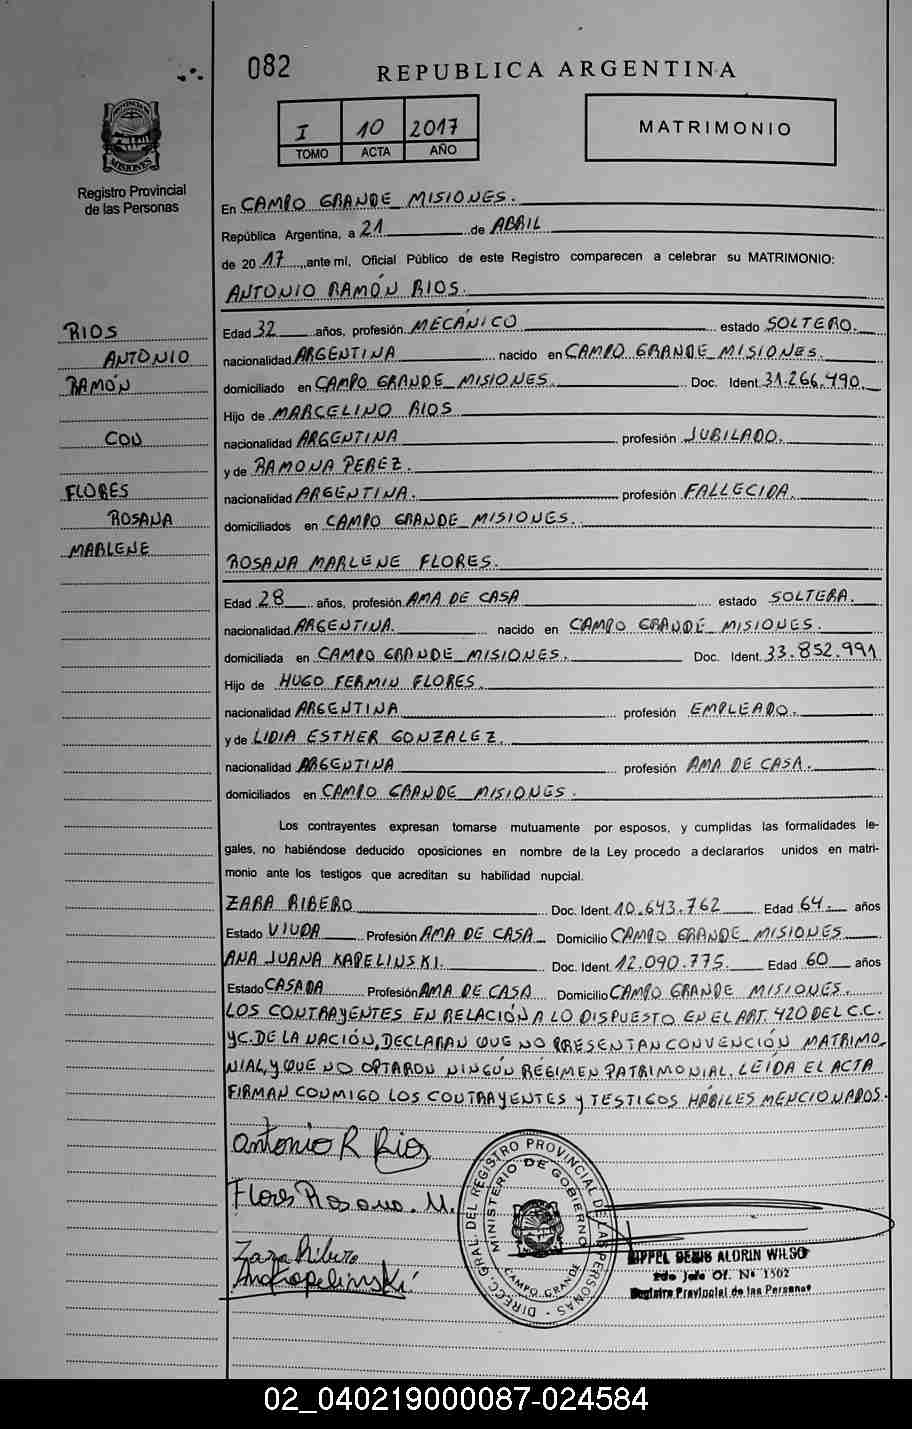 082
REPUBLICA ARGENTINA
I 10 2017
TOMO ACTA AÑO
MATRIMONIO
PROVINCIA DE
MISIONES
Registro Provincial
de las Personas
RIOS
ANTONIO
RAMÓN
CON
FLORES
ROSANA
MARLENE
En CAMPO GRANDE MISIONES.
República Argentina, a 21 de ABRIL
de 20 17, ante mí, Oficial Público de este Registro comparecen a celebrar su MATRIMONIO:
ANTONIO RAMÓN RIOS.
Edad 32 años, profesión MECÁNICO estado SOLTERO.
nacionalidad ARGENTINA nacido en CAMPO GRANDE MISIONES.
domiciliado en CAMPO GRANDE MISIONES. Doc. Ident. 31.266.490.
Hijo de MARCELINO RIOS
nacionalidad ARGENTINA profesión JUBILADO.
y de RAMONA PEREZ.
nacionalidad ARGENTINA. profesión FALLECIDA.
domiciliados en CAMPO GRANDE MISIONES.
ROSANA MARLENE FLORES.
Edad 28 años, profesión AMA DE CASA estado SOLTERA.
nacionalidad ARGENTINA. nacido en CAMPO GRANDE MISIONES.
domiciliada en CAMPO GRANDE MISIONES. Doc. Ident. 33.852.991
Hijo de HUGO FERMIN FLORES.
nacionalidad ARGENTINA profesión EMPLEADO.
y de LIDIA ESTHER GONZALEZ.
nacionalidad ARGENTINA profesión AMA DE CASA.
domiciliados en CAMPO GRANDE MISIONES.
Los contrayentes expresan tomarse mutuamente por esposos, y cumplidas las formalidades le-
gales, no habiéndose deducido oposiciones en nombre de la Ley procedo a declararlos unidos en matri-
monio ante los testigos que acreditan su habilidad nupcial.
ZARA RIBERO Doc. Ident. 10.643.762 Edad 64. años
Estado VIUDA Profesión AMA DE CASA Domicilio CAMPO GRANDE MISIONES
ANA JUANA KAPELINSKI. Doc. Ident. 12.090.775. Edad 60 años
Estado CASADA Profesión AMA DE CASA Domicilio CAMPO GRANDE MISIONES.
LOS CONTRAYENTES EN RELACIÓN A LO DISPUESTO EN EL ART. 420 DEL C.C.
YC. DE LA NACIÓN, DECLARAN QUE NO PRESENTAN CONVENCIÓN MATRIMO
NIAL, Y QUE NO OPTARON NINGÚN RÉGIMEN PATRIMONIAL. LEÍDA EL ACTA
FIRMAN CONMIGO LOS CONTRAYENTES Y TESTIGOS HÁBILES MENCIONADOS.
Antonio R Rios
Flores Rosana. M.
Zara Ribero
Ana Kapelinski
DIRECC. GRAL. DEL REGISTRO PROVINCIAL DE LAS PERSONAS
MINISTERIO DE GOBIERNO
CAMPO GRANDE
DENIS ALDRIN WILSO
2do Jefe Of. Nº 1502
Registro Provincial de las Personas
02_040219000087-024584